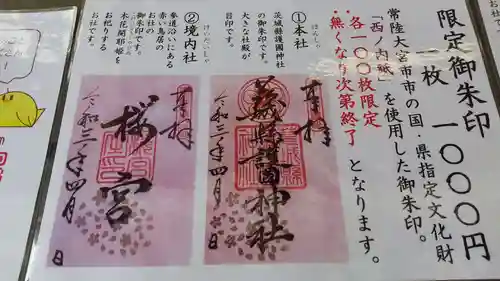 限定御朱印
一枚 一〇〇〇円
常陸大宮市市の国・県指定文化財
「西ノ内紙」を使用した御朱印。
各一〇〇枚限定
・無くなり次第終了 となります。
①本社
ほんしゃ
茨城縣護國神社
の御朱印です。
大きな社殿が
目印です。
②境内社
けいだいしゃ
参道沿いにある
赤い鳥居の
お社の
御朱印です。
木花開耶を
お祀りする
お社です。
奉拝
茨城縣護國神社
令和三年四月 日
奉拝
桜宮
令和三年四月 日